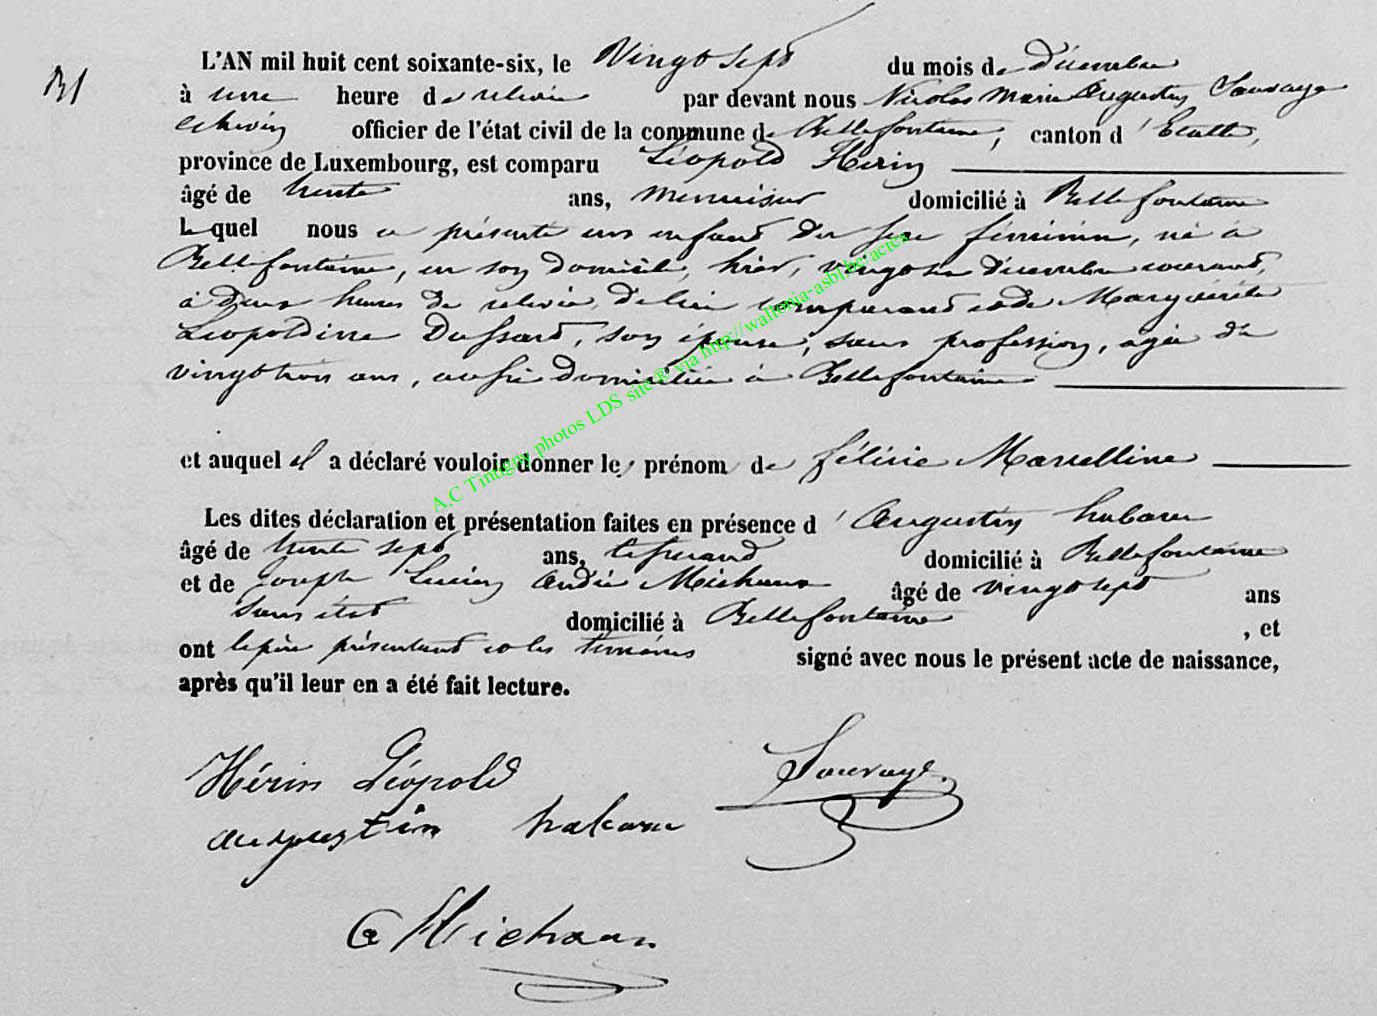 L'AN mil huit cent soixante-six, le Vingt Sept du mois de Décembre
à une heure de relevée par devant nous Nicolas Marie Augustin Sauvage
échevin officier de l'état civil de la commune de Bellefontaine, canton d'Etalle,
province de Luxembourg, est comparu Léopold Hérin
âgé de trente ans, menuisier domicilié à Bellefontaine
lequel nous a présenté un enfant du sexe féminin, né à
Bellefontaine, en son domicile, hier, vingt six Décembre courant,
à deux heures de relevée, de lui comparant et de Marguerite
Léopoldine Dussard, son épouse, sans profession, agée de
vingt trois ans, aussi domiciliée à Bellefontaine
et auquel il a déclaré vouloir donner les prénom de félicie Marcelline
Les dites déclaration et présentation faites en présence d'Augustin habaru
âgé de trente sept ans, tisserand domicilié à Bellefontaine
et de Joseph Lucien André Michaux âgé de vingt sept ans
sans état domicilié à Bellefontaine , et
ont le père présentant et les témoins signé avec nous le présent acte de naissance,
après qu'il leur en a été fait lecture.
Hérin Léopold Sauvage
augustin habaru
Michaux
A.C Tintigny photos LDS site ® via http://wallonia-asbl.be/actes